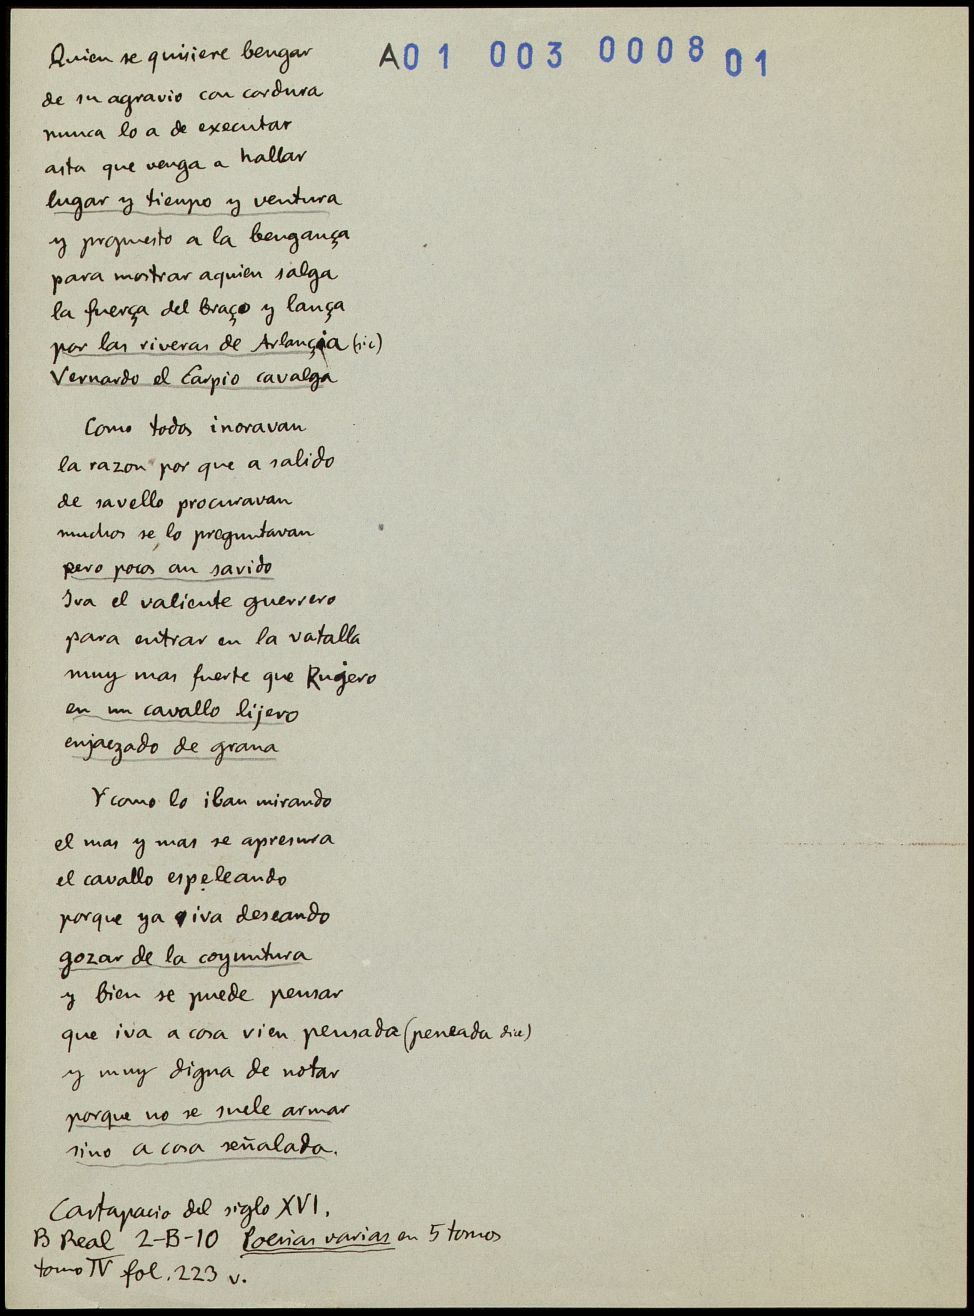 A01 003 0008 01
Quien se quisiere bengar
de su agravio con cordura
nunca lo a de executar
asta que venga a hallar
lugar y tiempo y ventura
y propuesto a la bengança
para mostrar aquien salga
la fuerça del braço y lança
por las riveras de Arlançia (sic)
Vernardo el Carpio cavalga
Como todos inoravan
la razon por que a salido
de savello procuravan
muchos se lo preguntavan
pero pocos an savido
Iva el valiente guerrero
para entrar en la vatalla
muy mas fuerte que Rugero
en un cavallo lijero
enjaezado de grana
Y como lo iban mirando
el mas y mas se apresura
el cavallo espeleando
porque ya iva deseando
gozar de la coyuntura
y bien se puede pensar
que iva a cosa vien pensada (peneada dice)
y muy digna de notar
porque no se suele armar
sino a cosa señalada.
Cartapacio del siglo XVI.
B Real 2-B-10 Poesias varias en 5 tomos
tomo IV fol. 223 v.